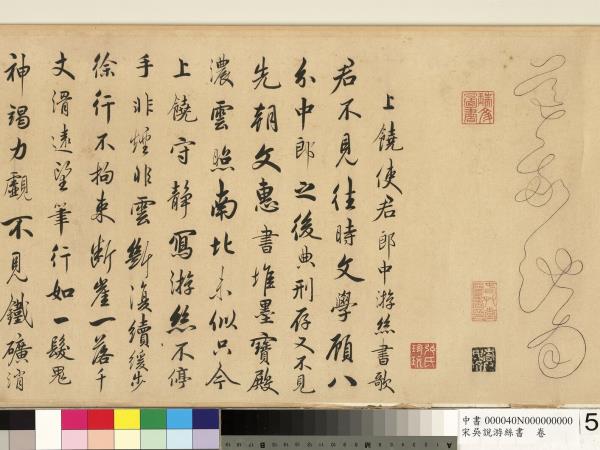 上饒使君郎中游絲書歌
君不見往時文學顧八
分中郎之後典刑存又不見
先朝文惠書堆墨寶殿
濃雲照南北未似只今
上饒守靜寫游絲不停
手非煙非雲斷復續緩步
徐行不拘束斷崖一落千
丈滑遠望筆行如一髮鬼
神竭力覰不見鐵礦消
中書 000040N000000000
宋吳說游絲書 卷
5